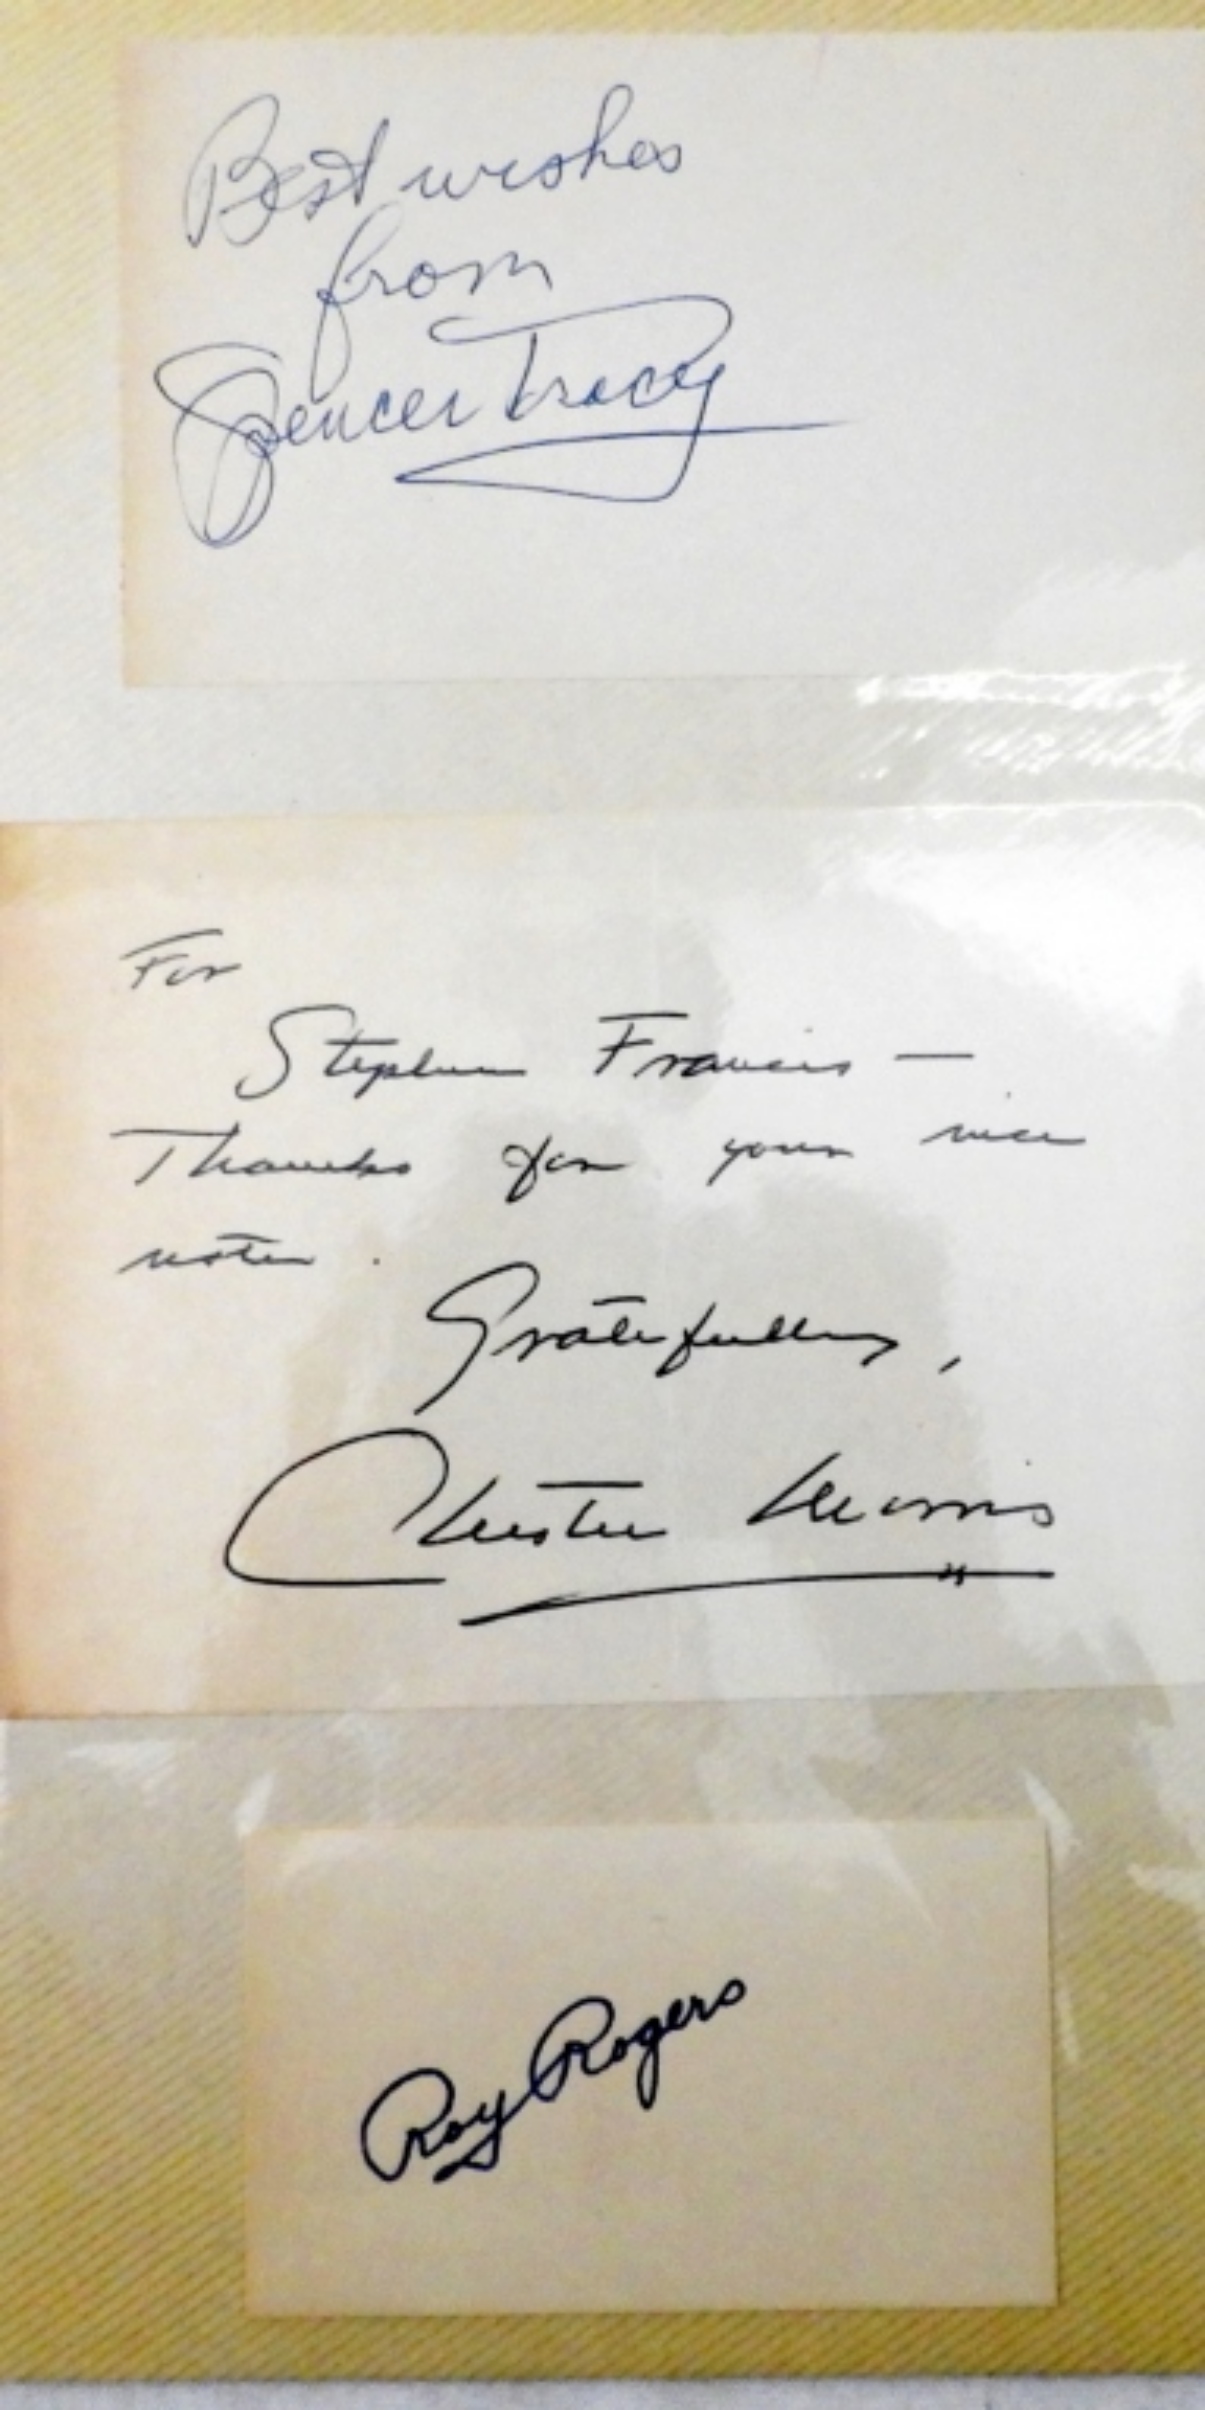 Best wishes
from
Spencer Tracy
For
Stephen Francis —
Thanks for your nice
note.
Gratefully,
Chester Morris
Roy Rogers